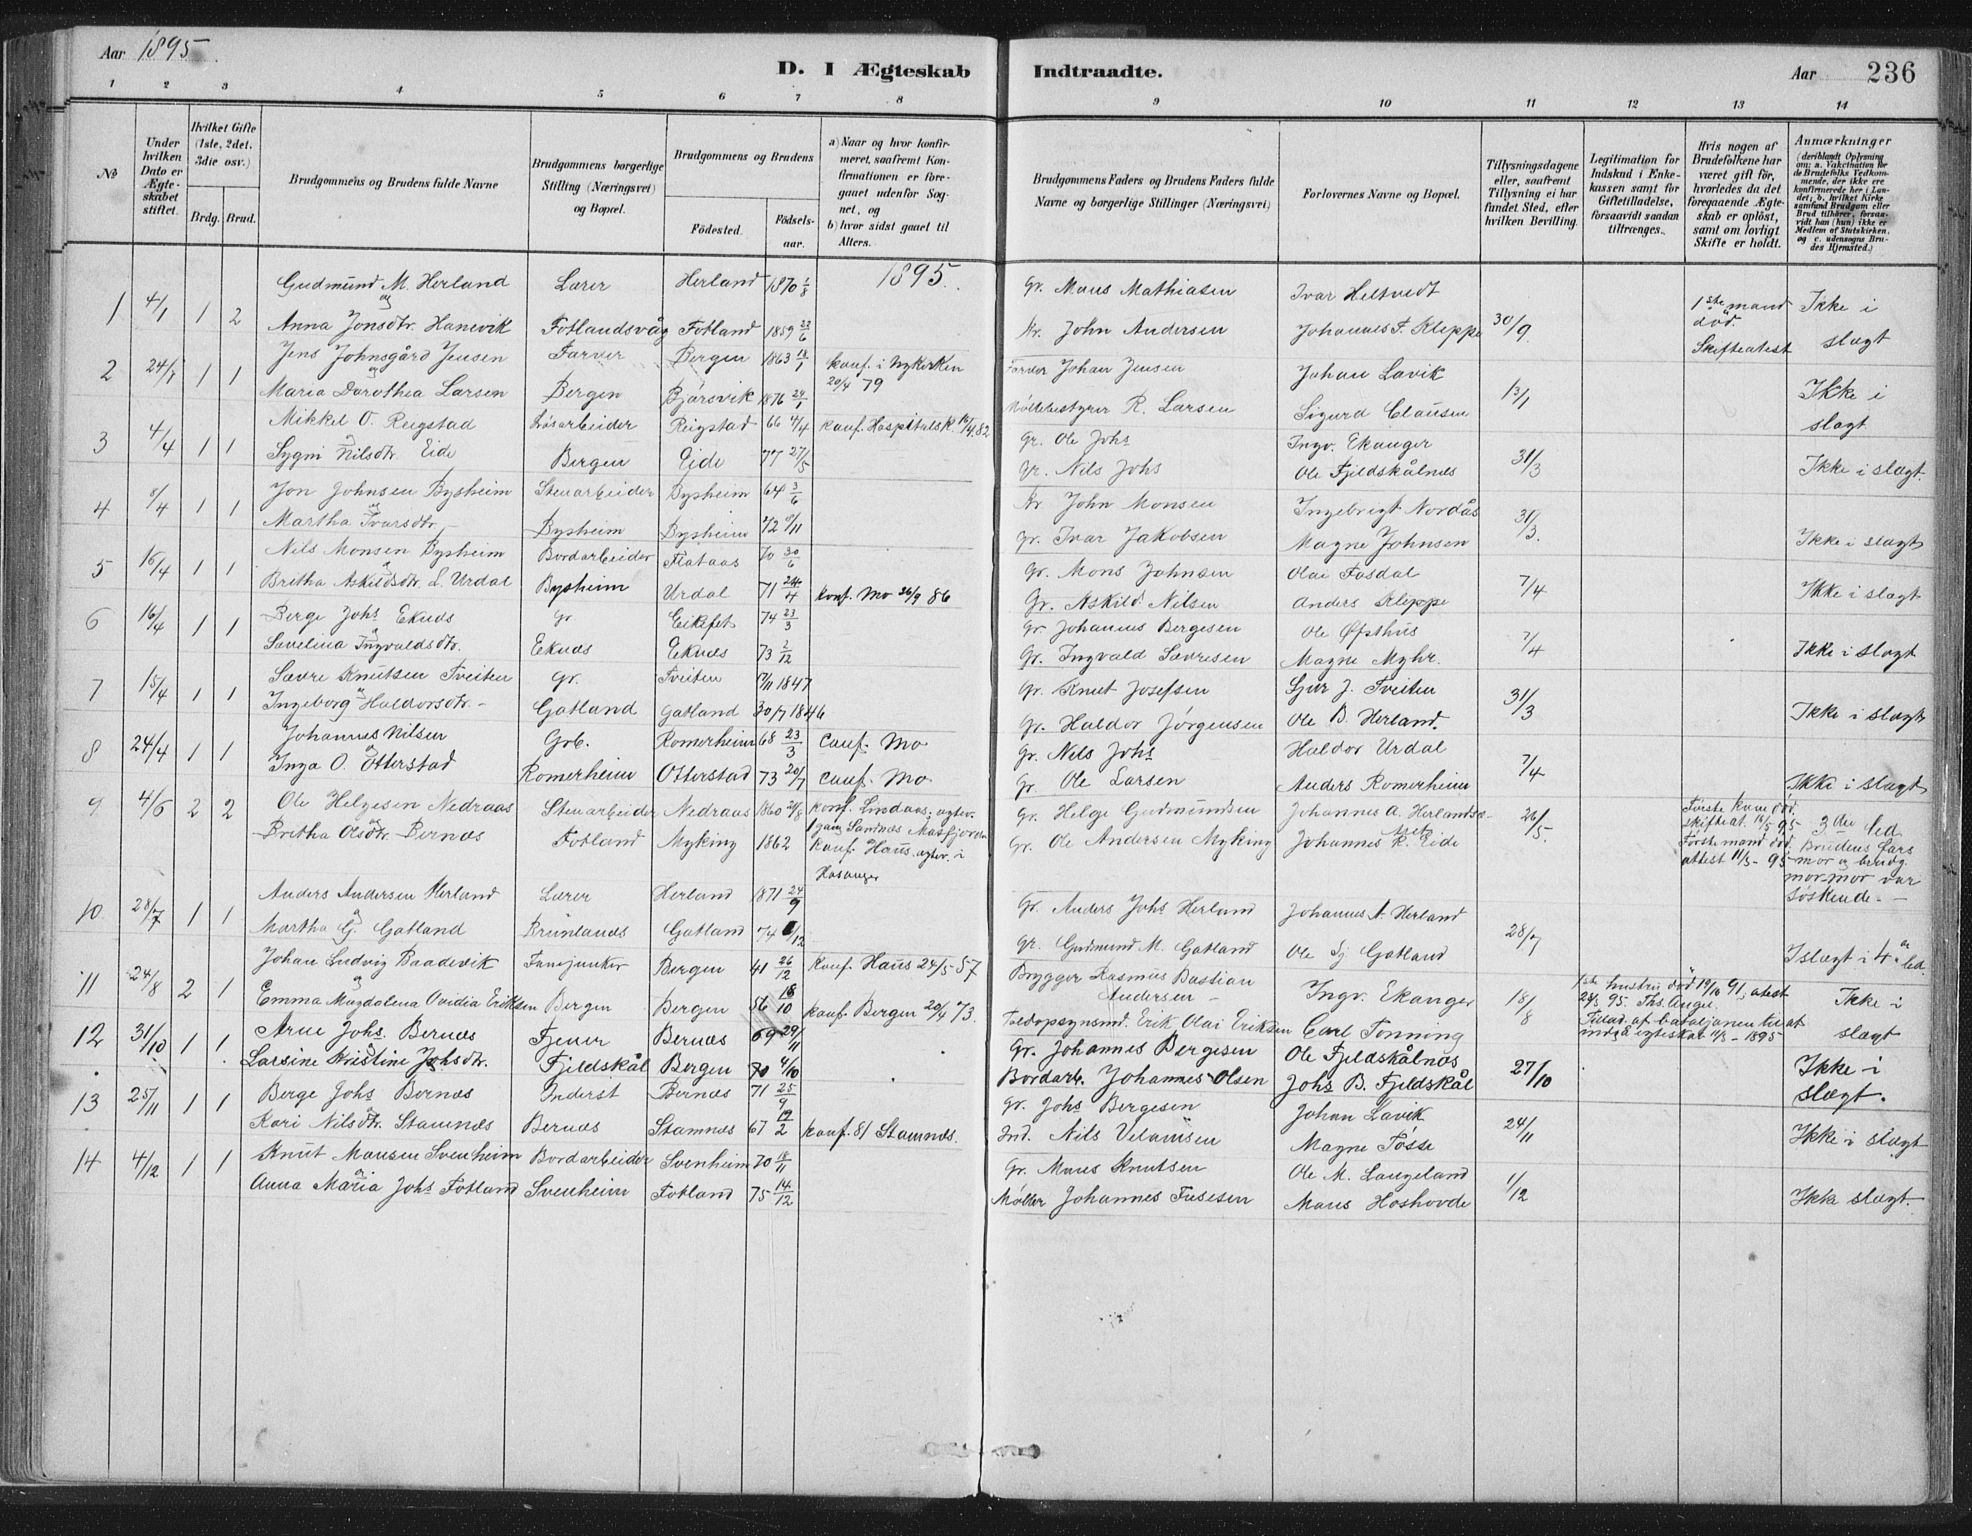 Aar 1895.
D. I Ægteskab Indtraadte.
Aar 236
1 2 3 4 5 6 7 8 9 10 11 12 13 14
No
Under hvilken Dato er Ægteskabet stiftet.
Hvilket Gifte (1ste, 2det, 3die osv.)
Brdg. Brud.
Brudgommens og Brudens fulde Navne
Brudgommens borgerlige Stilling (Næringsvei) og Bopæl.
Brudgommens og Brudens
Födested. Födsels-aar.
a) Naar og hvor konfirmeret, saafremt Konfirmationen er foregaaet udenfor Sognet, og b) hvor sidst gaaet til Alters.
Brudgommens Faders og Brudens Faders fulde Navne og borgerlige Stillinger (Næringsvei)
Forlovernes Navne og Bopæl.
Tillysningsdagene eller, saafremt Tillysning ei har fundet Sted, efter hvilken Bevilling.
Legitimation for Indskud i Enkekassen samt for Giftetilladelse, forsaavidt saadan tiltrænges.
Hvis nogen af Brudefolkene har været gift för, hvorledes da det foregaaende Ægteskab er oplöst, samt om lovligt Skifte er holdt.
Anmærkninger (deriblandt Oplysning om: a. Vakcination for de Brudefolks Vedkommende, der ikke ere konfirmerede her i Landet; b. hvilket Kirkesamfund Brudgom eller Brud tilhörer, forsaavidt han (hun) ikke er Medlem af Statskirken, og c. udensogns Brudes Hjemsted.)
1895.
1 4/1 1 2 Gudmund M. Herland Lærer Herland 1870 1/8 Gr. Mons Mathiasen Ivar Heltvedt
og Anna Jonsdtr. Hanevik Fotlandsvåg Fotland 1859 22/6 Kr. John Andersen Johannes F. Kleppe 30/9 1ste mand död. Skifteatest Ikke i slægt
2 24/1 1 1 Jens Johnsgård Jensen Farver Bergen 1863 18/1 konf. i Nykirken 20/4 79 Farver Johan Jensen Johan Lavik
og Maria Dorothea Larsen Bergen Bjørsvik 1876 24/1 Møllebestyrer R. Larsen Sigurd Clausen 13/1 Ikke i slægt
3 4/4 1 1 Mikkel O. Reigstad Løsarbeider Reigstad 66 4/4 konf. Hospitalsk. 16/4 82 Gr. Ole Johs Ingv. Ekanger
Sygni Nilsdtr. Eide Bergen Eide 77 27/5 Gr. Nils Johs Ole Fjeldskålnes 31/3 Ikke i slægt.
4 8/4 1 1 Jon Johnsen Bysheim Stenarbeider Bysheim 64 3/6 Kr John Monsen Ingebrigt Nordås
Martha Ivarsdtr. Bysheim Bysheim 72 9/11 Gr. Ivar Jakobsen Magne Johnsen 31/3. Ikke i slægt
5 16/4 1 1 Nils Monsen Bysheim Bordarbeider Flataas 70 30/6 Gr. Mons Johnsen Olai Fosdal
Britha Askildsdtr. L. Urdal Bysheim Urdal 71 24/4 konf. Mo 26/9 86 Gr. Askild Nilsen Anders Kleppe 7/4 Ikke i slægt
6 16/4 1 1 Berge Johs Eknes Gr. Eikefet 74 23/3 Gr Johannes Bergesen Ole Øpsthus
Savelina Ingvaldsdtr. Eknes Eknes 73 2/12 Gr. Ingvald Sævresen Magne Myhr. 7/4 Ikke i slægt
7 15/4 1 1 Sævre Knutsen Tveiten Gr. Tveiten 17/11 1847 Gr. Knut Josefsen Sjur J. Tveiten
Ingeborg Haldorsdtr. Gatland Gatland 30/7 1846 Gr. Haldor Jørgensen Ole B. Herland. 31/3 Ikke i slægt
8 24/4 1 1 Johannes Nilsen Grb. Romerheim 68 23/3 Conf. Mo Gr. Nils Johs Haldor Urdal
Inga O. Otterstad Romerheim Otterstad 73 20/7 Conf. Mo Gr. Ole Larsen Anders Romerheim 7/4 Ikke i slægt
9 4/6 2 2 Ole Helgesen Nedraas Stenarbeider Nedraas 1860 21/8 konf. Lindaas, Gr. Helge Gudmundsen Johannes A. Herlandsæter 26/5.
Britha Olsdtr. Bernæs Fotland Myking 1862 konf. Haus i Hosanger Gr. Ole Andersen Myking Johannes K. Eide
Første kone död. skifteat. 14/5 95 Første mand död. attest 11/3-95
3die led Brudens fars mor og brudg. mor-mor var søskende.
10 28/7 1 1 Anders Andersen Herland Lærer Herland 1871 24/9 Gr. Anders Johs Herland Johannes A. Herland
Martha G. Gatland Brunlands Gatland 74 8/12 Gr. Gudmund M. Gatland Ole Sj Gatland 28/7 I slægt i 4de led.
11 24/8 2 1 Johan Ludvig Baadevik Fanejunker Bergen 41 26/12 Konf. Haus 24/5 57 Brygger Rasmus Bastian Andersen Ingv. Ekanger
Emma Magdalena Ovidia Eriksen Bergen Bergen 56 18/10 konf. Bergen 20/4 73. Toldopsynsmd. Erik Olai Eriksen Carl Tonning 18/8
1ste hustru död 19/10 91, atest 24/3 95 Ths. Angel. Tillad. af bataljonen til at indgå egteskab 11/3-1895 Ikke i slægt
12 31/10 1 1 Arne Johs. Bernes Tjener Bernæs 69 29/11 Gr. Johannes Bergesen Ole Fjeldskålnes
Larsine Kristine Johsdtr. Fjeldskål Bergen 70 4/10 Bordarb. Johannes Olsen Johs B. Fjeldskål 27/10 Ikke i slægt.
13 25/11 1 1 Berge Johs Bernes Inderst Bernæs 71 25/9 Gr. Johs Bergesen Johan Lavik
Kari Nilsdtr. Stamnes Bernæs Stamnæs 67 19/2 konf. 81 Stamnes. Ind. Nils Velomsen Magne Fosse 24/11 Ikke i slægt
14 4/12 1 1 Knut Monsen Svenheim Bordarbeider Svenheim 70 18/11 Gr. Mons Knutsen Ole M. Langeland
Anna Maria Johs Fotland Svenheim Fotland 75 14/12 Møller Johannes Fusesen Mons Hoshovde 1/12 Ikke slægt.